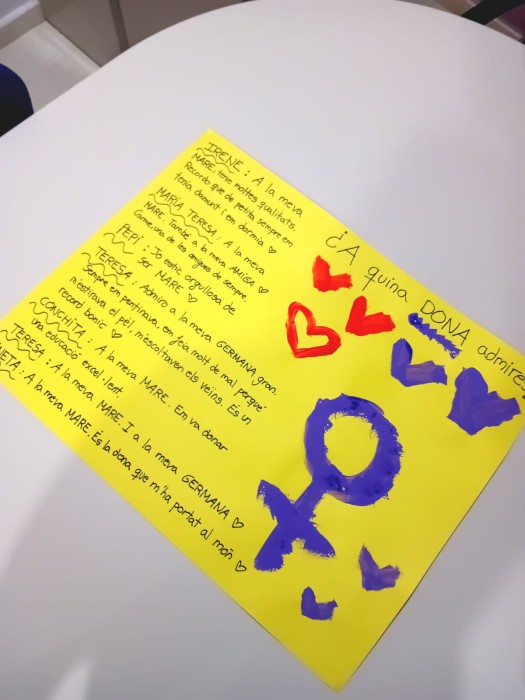 ¿A quina DONA admires
IRENE: A la meva
MARE, tenie moltes qualitats.
Recordo que de petita sempre em
tenia damunt i em dormia ♡
MARIA TERESA: A la meva
MARE. També a la meva AMIGA
Carme una de les amigues de sempre. ♡
PEPI: Jo estic orgullosa de
ser MARE ♡
TERESA: Admiro a la meva GERMANA gran.
Sempre em pentinava, em feia molt de mal perquè
m'estirava el pèl, m'escoltaven els veïns. És un
record bonic ♡
CONCHITA: A la meva MARE. Em va donar
una educació excel·lent.
TERESA: A la meva MARE. I a la meva GERMANA ♡
A la meva MARE. És la dona que m'ha portat al món ♡